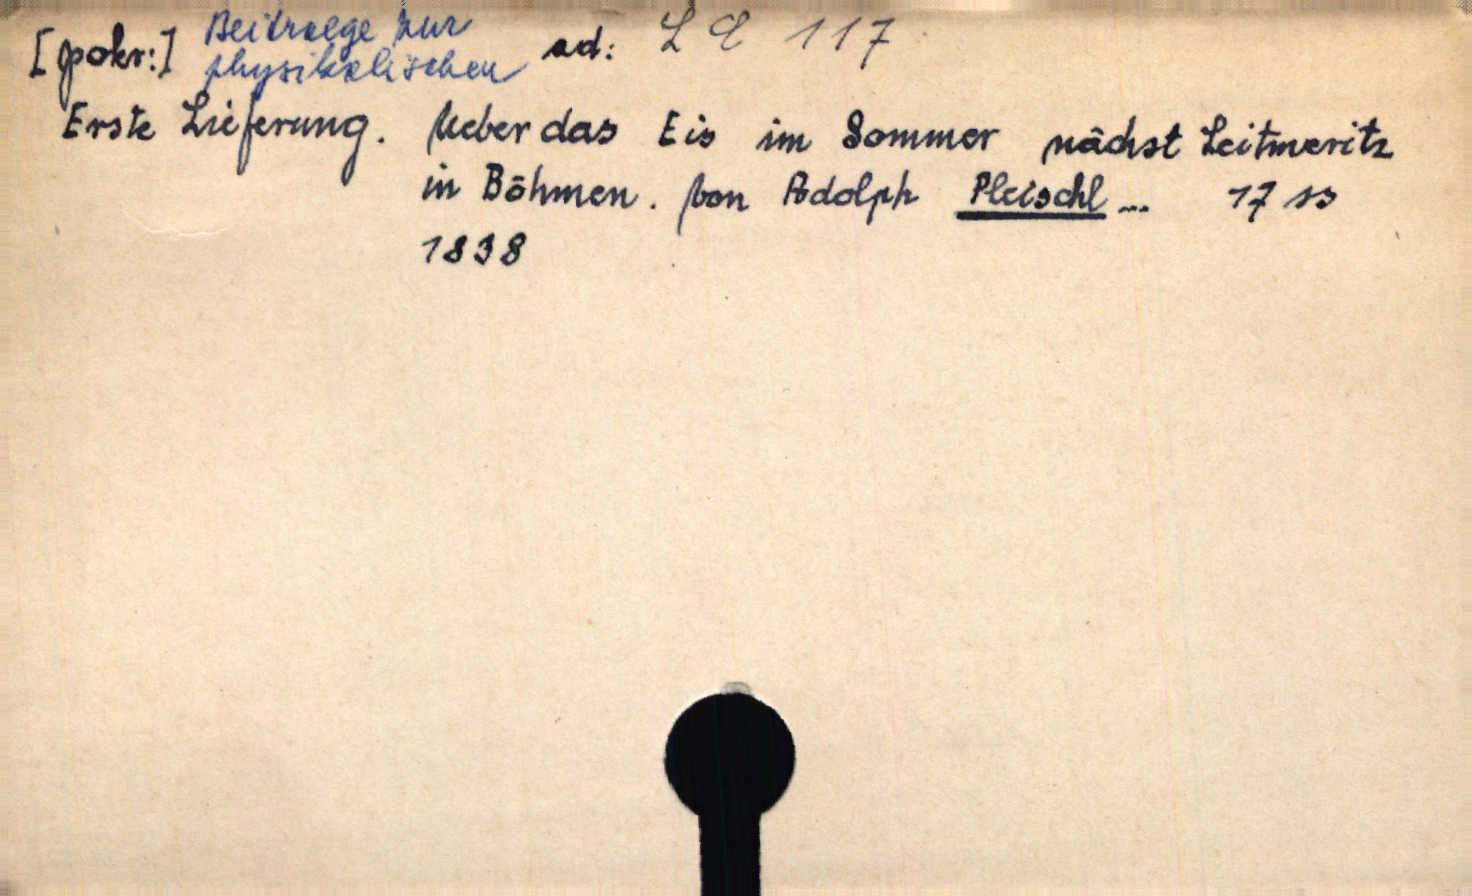 [pokr:] Beitraege zur physikalischen ad: L E 117
Erste Lieferung. Ueber das Eis im Sommer nächst Leitmeritz
in Böhmen. Von Adolph Pleischl ... 17 ss
1838